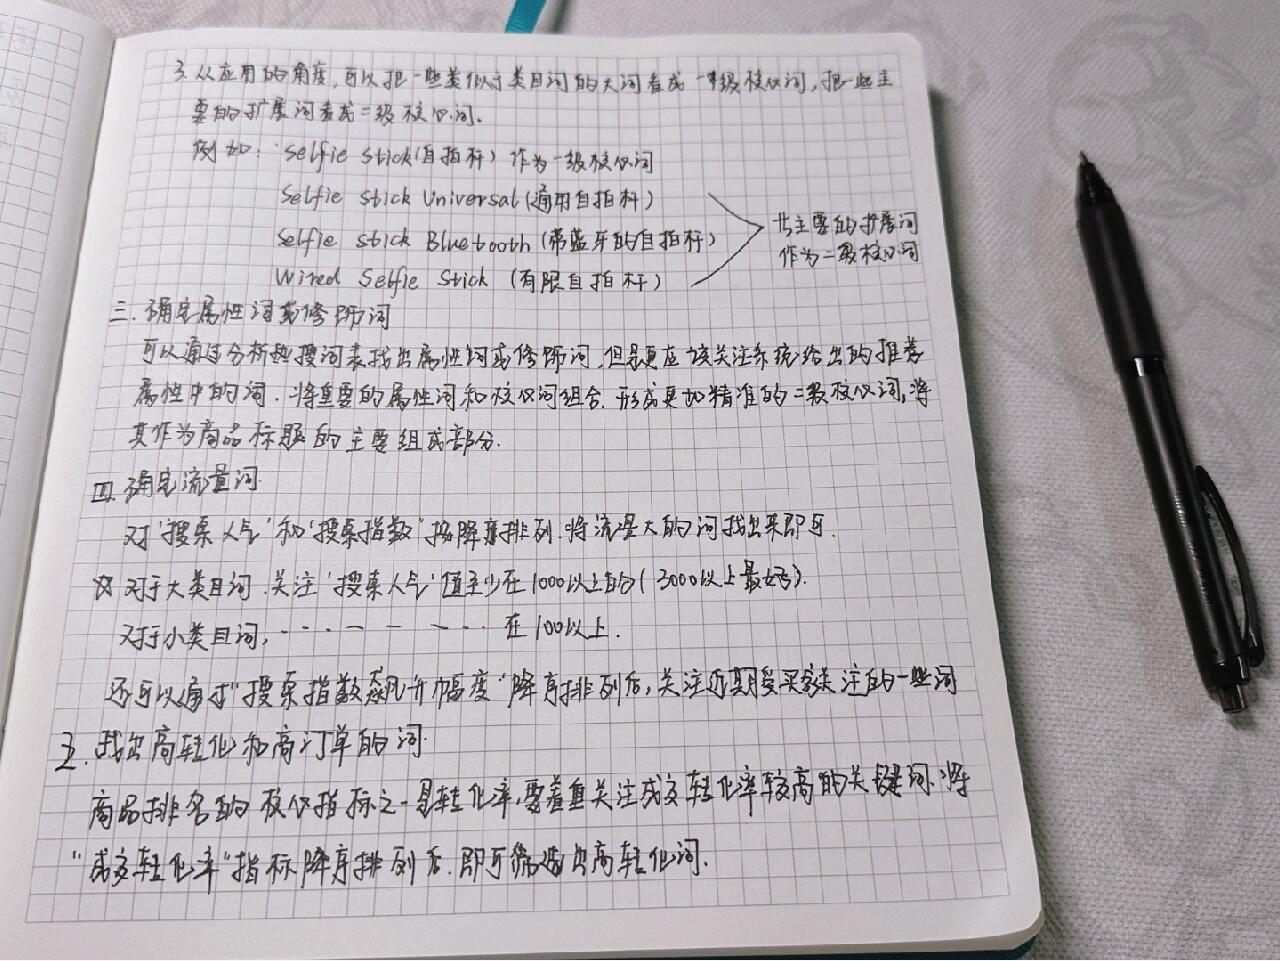 3. 从应用的角度,可以把一些类似于类目词的大词看成一级核心词,把一些主
要的扩展词看成二级核心词.
例如: Selfie Stick(自拍杆) 作为一级核心词
Selfie Stick Universal(通用自拍杆)
Selfie Stick Bluetooth(带蓝牙的自拍杆)
Wired Selfie Stick (有限自拍杆)
共主要的扩展词
作为二级核心词
三. 确定属性词或修饰词
可以通过分析热搜词表找出属性词或修饰词,但是更应该关注系统给出的推荐
属性中的词. 将重要的属性词和核心词组合.形成更加精准的二级核心词,将
其作为商品标题的主要组成部分.
四.确定流量词
对“搜索人气”和“搜索指数”按降序排列.将流量大的词找出来即可.
☆对于大类目词.关注“搜索人气”值至少在1000以上的(3000以上最好).
对于小类目词, · · · — — — · · · 在100以上.
还可以通过“搜索指数飙升幅度”降序排列后,关注近期受买家关注的一些词
五.找出高转化和高订单的词.
商品排名的核心指标之一是转化率,要着重关注成交转化率较高的关键词.将
“成交转化率”指标降序排列后.即可筛选出高转化词.